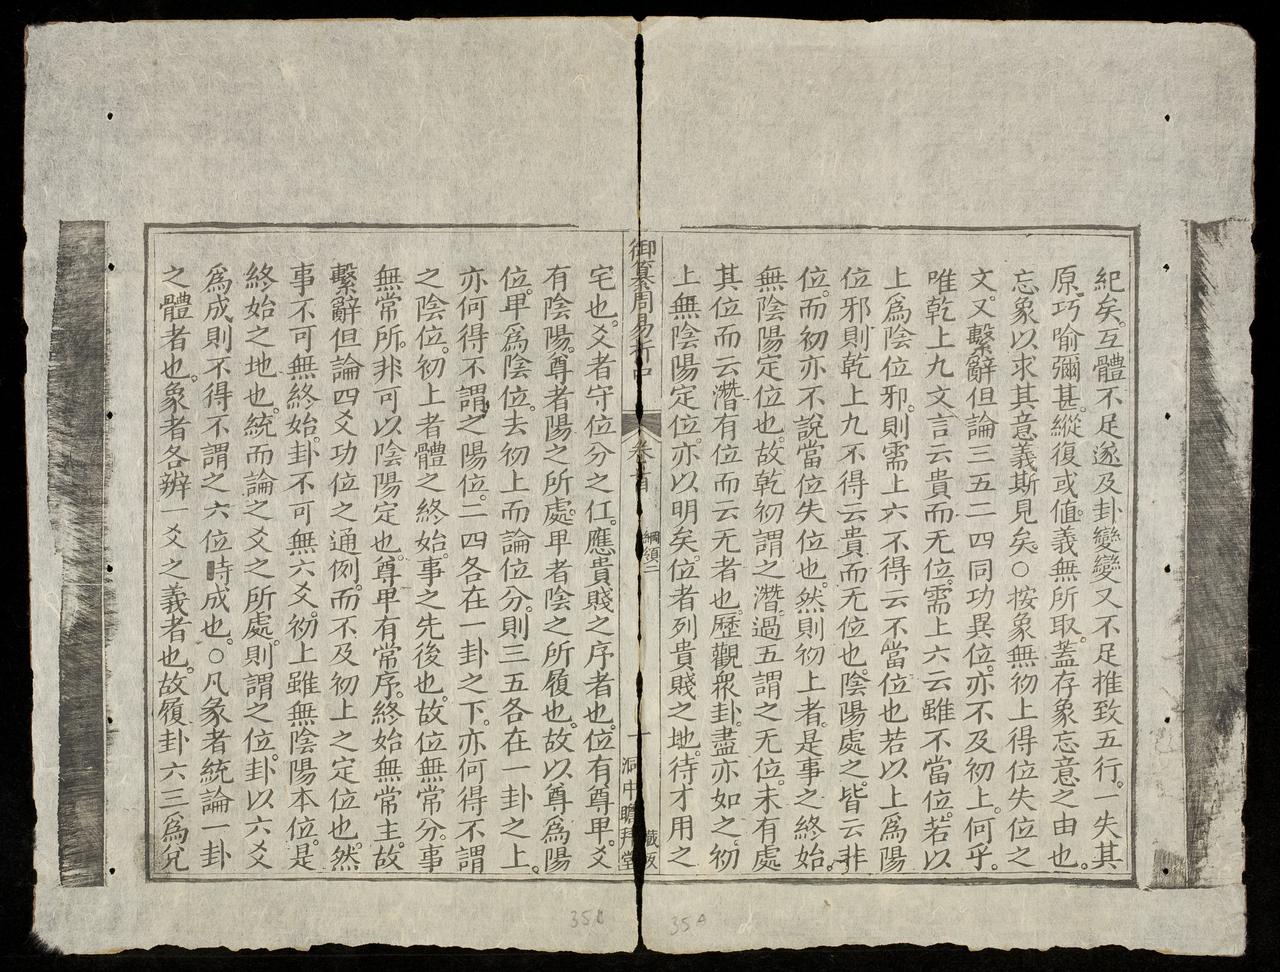 紀矣。互體不足遂及卦變變又不足推致五行。一失其
原巧喻彌甚。縱復或值。義無所取。蓋存象忘意之由也。
忘象以求其意義斯見矣。○按象無初上得位失位之
文。又繫辭但論三五二四同功異位。亦不及初上。何乎。
唯乾上九文言云貴而无位。需上六云雖不當位。若以
上爲陰位邪。則需上六不得云不當位也若以上爲陽
位邪則乾上九不得云貴而无位也。陰陽處之。皆云非
位。而初亦不說當位失位也。然則初上者。是事之終始。
無陰陽定位也。故乾初謂之潛。過五謂之无位。未有處
其位而云潛有位而云无者也。歷觀衆卦。盡亦如之。初
上無陰陽定位。亦以明矣。位者列貴賤之地。待才用之
御纂周易折中
卷首
綱領二
一
洞中瞻拜堂
藏板
宅也。爻者守位分之仁。應貴賤之序者也。位有尊卑。爻
有陰陽。尊者陽之所處。卑者陰之所履也。故以尊爲陽
位。卑爲陰位。去初上而論位分。則三五各在一卦之上。
亦何得不謂之陽位。二四各在一卦之下。亦何得不謂
之陰位。初上者體之終始。事之先後也。故位無常分。事
無常所。非可以陰陽定也。尊卑有常序。終始無常主。故
繫辭但論四爻功位之通例。而不及初上之定位也。然
事不可無終始。卦不可無六爻。初上雖無陰陽本位。是
終始之地也。統而論之爻之所處。則謂之位。卦以六爻
爲成則不得不謂之六位時成也。○凡彖者統論一卦
之體者也。象者各辨一爻之義者也。故履卦六三爲兌
35B
35A